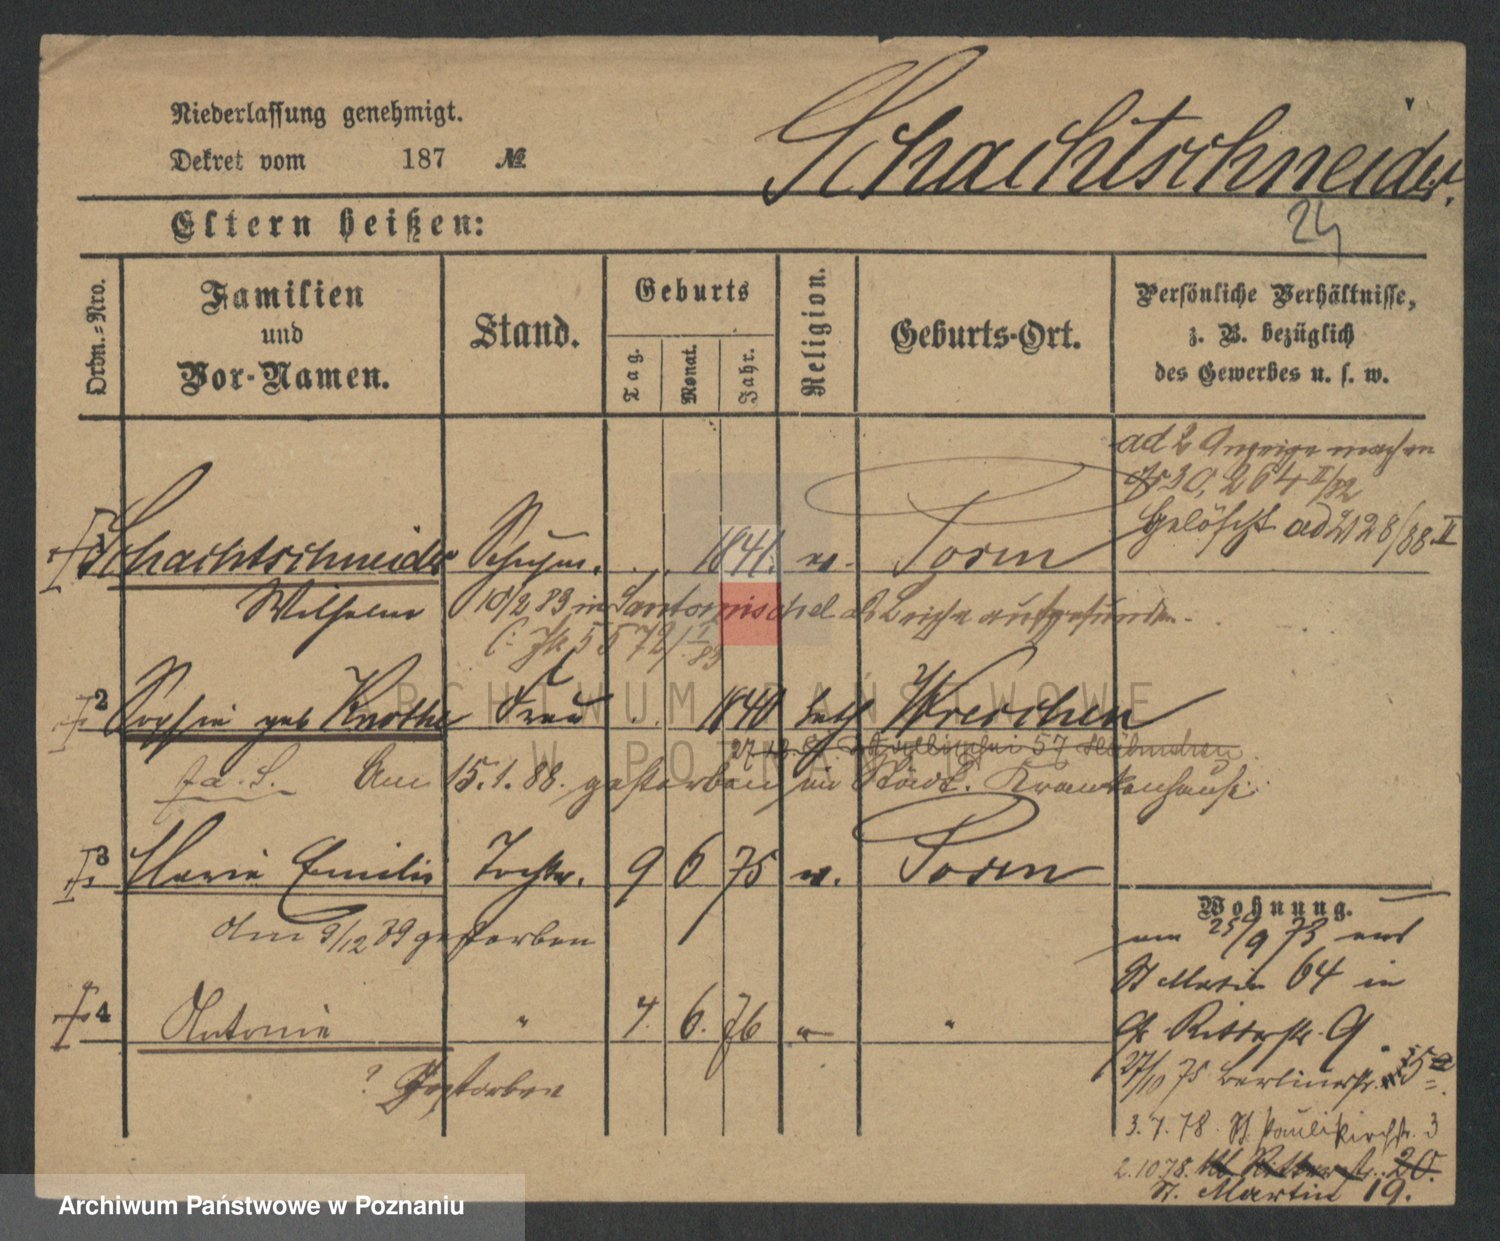 Niederlassung genehmigt.
Dekret vom 187 №
Schachtschneider.
24
Eltern heißen:
Ordn.-Nro.
Familien
und
Vor-Namen.
Stand.
Geburts
Tag.
Monat.
Jahr.
Religion.
Geburts-Ort.
Persönliche Verhältnisse,
z. B. bezüglich
des Gewerbes u. s. w.
ad 2 Anzeige machen
264 II/82
Gelöscht ad 2 128/88. II
1 Schachtschneider Schuhm. 1841. ev. Posen
Wilhelm 10/2 83 in Santomischel als Leiche aufgefunden.
5572/I 83
2 Sophie geb Knothe Frau 1840 kath Wreschen
57
Am 15.1.88. gestorben im Städt. Krankenhause.
3 Marie Emilie Tochter. 9 6 75 ev. Posen
Am 9/12 89 gestorben
4 Antonie " 7. 6. 76 "
? Gestorben
Wohnung.
am 25/9 75 aus
St Martin 64 in
Gr Ritterstr 9.
27/10 75 Berlinerstr. 15a
3.7.78. Paulikirchstr. 3
2.10 78. Ritterstr. 20.
St. Martin 19.
ARCHIWUM PAŃSTWOWE
W POZNANIU
Archiwum Państwowe w Poznaniu